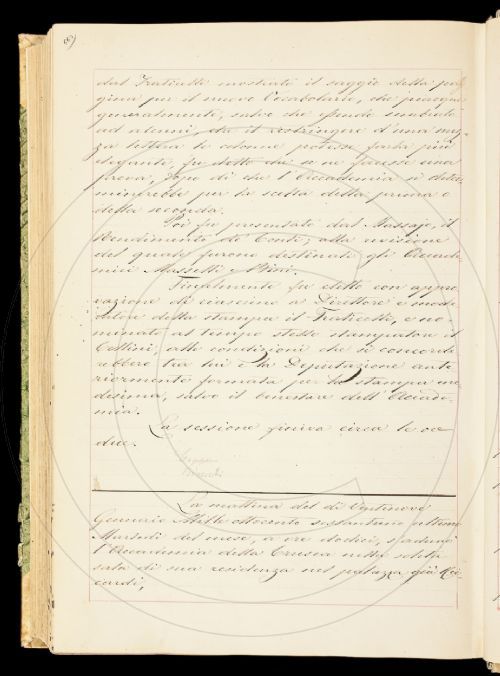 dal Fraticelli mostrato il saggio della pa-
gina per il nuovo Vocabolario, che piacque
generalmente, salvo che essendo sembrato
ad alcuni, che il restringere d'una mez-
za lettera le colonne potesse farla più
elegante, fu detto che se ne facesse una
prova, dopo di che l'Accademia si deter-
minerebbe per la scelta della prima o
della seconda.
Poi fu presentato dal Massajo, il
Rendimento di Conti, alla revisione
del quale furono destinati gli Accade-
mici Masselli e Bini.
Finalmente fu eletto con appro-
vazione di ciascuno a Direttore e
della stampa il Fraticelli, e no-
minato al tempo stesso stampatore il
Cellini, alle condizioni che si concorde-
rebbero tra lui e la Deputazione ante-
riormente formata per la stampa me-
desima, salvo il benestare dell'Accade-
mia.
La sessione finiva circa le ore
due.
La mattina del dì Ventinove
Gennario Mille ottocento sessantuno ultimo
Martedì del mese, a ore dodici, s'adunò
l'Accademia della Crusca nella solita
sala di sua residenza nel palazzo già Ric-
cardi,